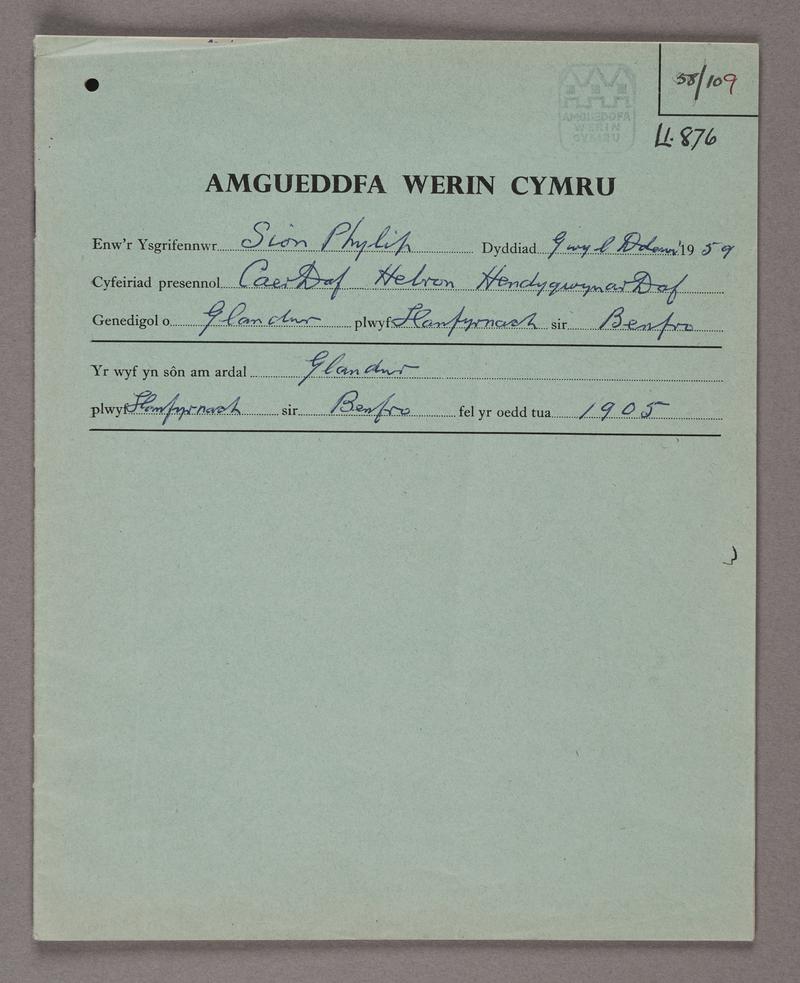 38/109
Ll. 876
AMGUEDDFA
WERIN
CYMRU
AMGUEDDFA WERIN CYMRU
Enw'r Ysgrifennwr Sion Phylip Dyddiad Gwyl Ddewi 1959
Cyfeiriad presennol CaerDaf Hebron HendygwynarDaf
Genedigol o Glandwr plwyf Llanfyrnach sir Benfro
Yr wyf yn sôn am ardal Glandwr
plwyf Llanfyrnach sir Benfro fel yr oedd tua 1905